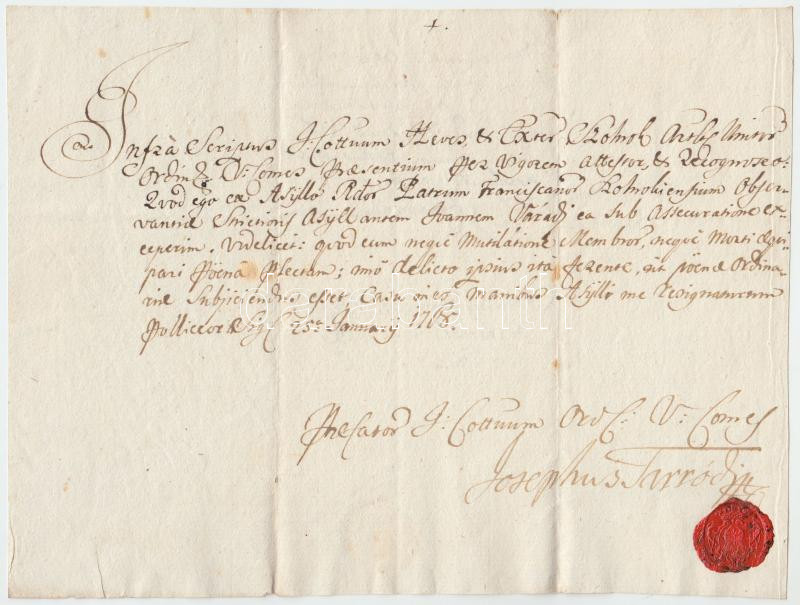 +.
Infrà Scriptus I: Cottuum Heves, & Exter Szolnok Artlr Unitor
Ordin V: Comes Præsentium per vigorem attestor, & recognosco:
Quod ego ex Asyllo Rdor Patrum Franciscanor Szolnokiensium Obser-
vantiæ Strictioris Asyllantem Joannem Váradi ea sub Assecuratione ex-
ceperim, videlicet: quod eum neque Mutilatione Membror, neque Morti æqui-
pari Pœna Plectam; imò delicto ipsius ità ferente, ut pœnæ Ordina-
riæ Subjiciendus esset, Casu in eo, Asyllo me resignaturum
Polliceor. Sig 25 January 1765.
Præfator I: Cottuum Ord V: Comes
Josephus Tarródy
darabanth